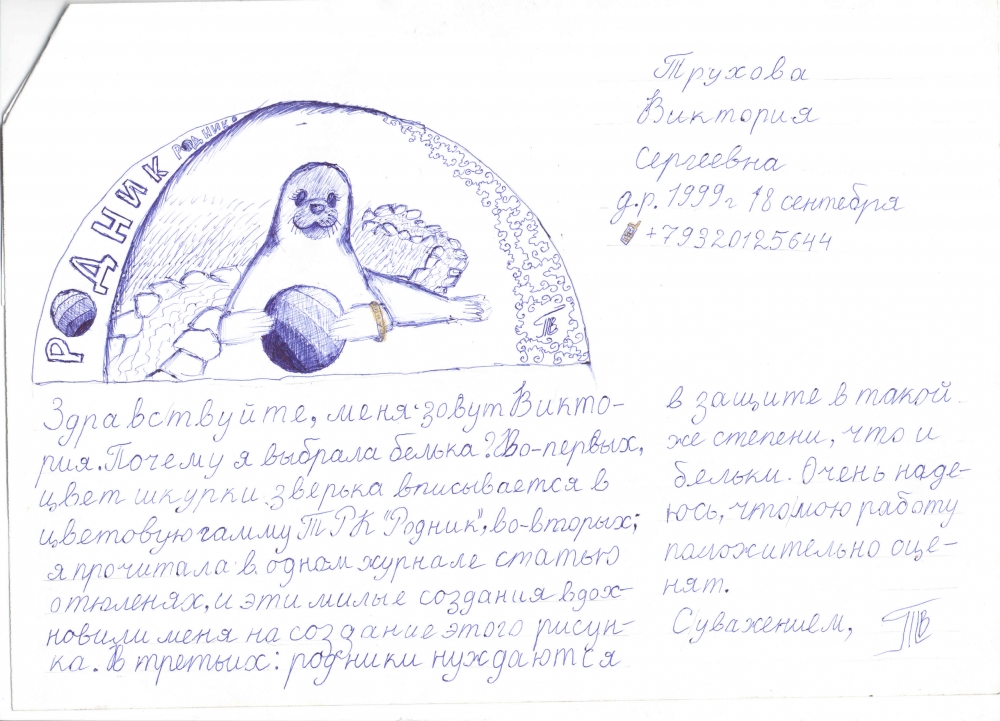 РОДНИК
РОДНИК
Трухова
Виктория
Сергеевна
д.р. 1999 г 18 сентебря
+79320125644
ТВ
Здравствуйте, меня зовут Викто-
рия. Почему я выбрала белька? Во-первых,
цвет шкурки зверька вписывается в
цветовую гамму ТРК "Родник", во-вторых;
я прочитала в одном журнале статью
о тюленях, и эти милые создания вдох-
новили меня на создание этого рисун-
ка. В третьих: родники нуждаются
в защите в такой
же степени, что и
бельки. Очень наде-
юсь, что мою работу
положительно оце-
нят.
С уважением, ТВ